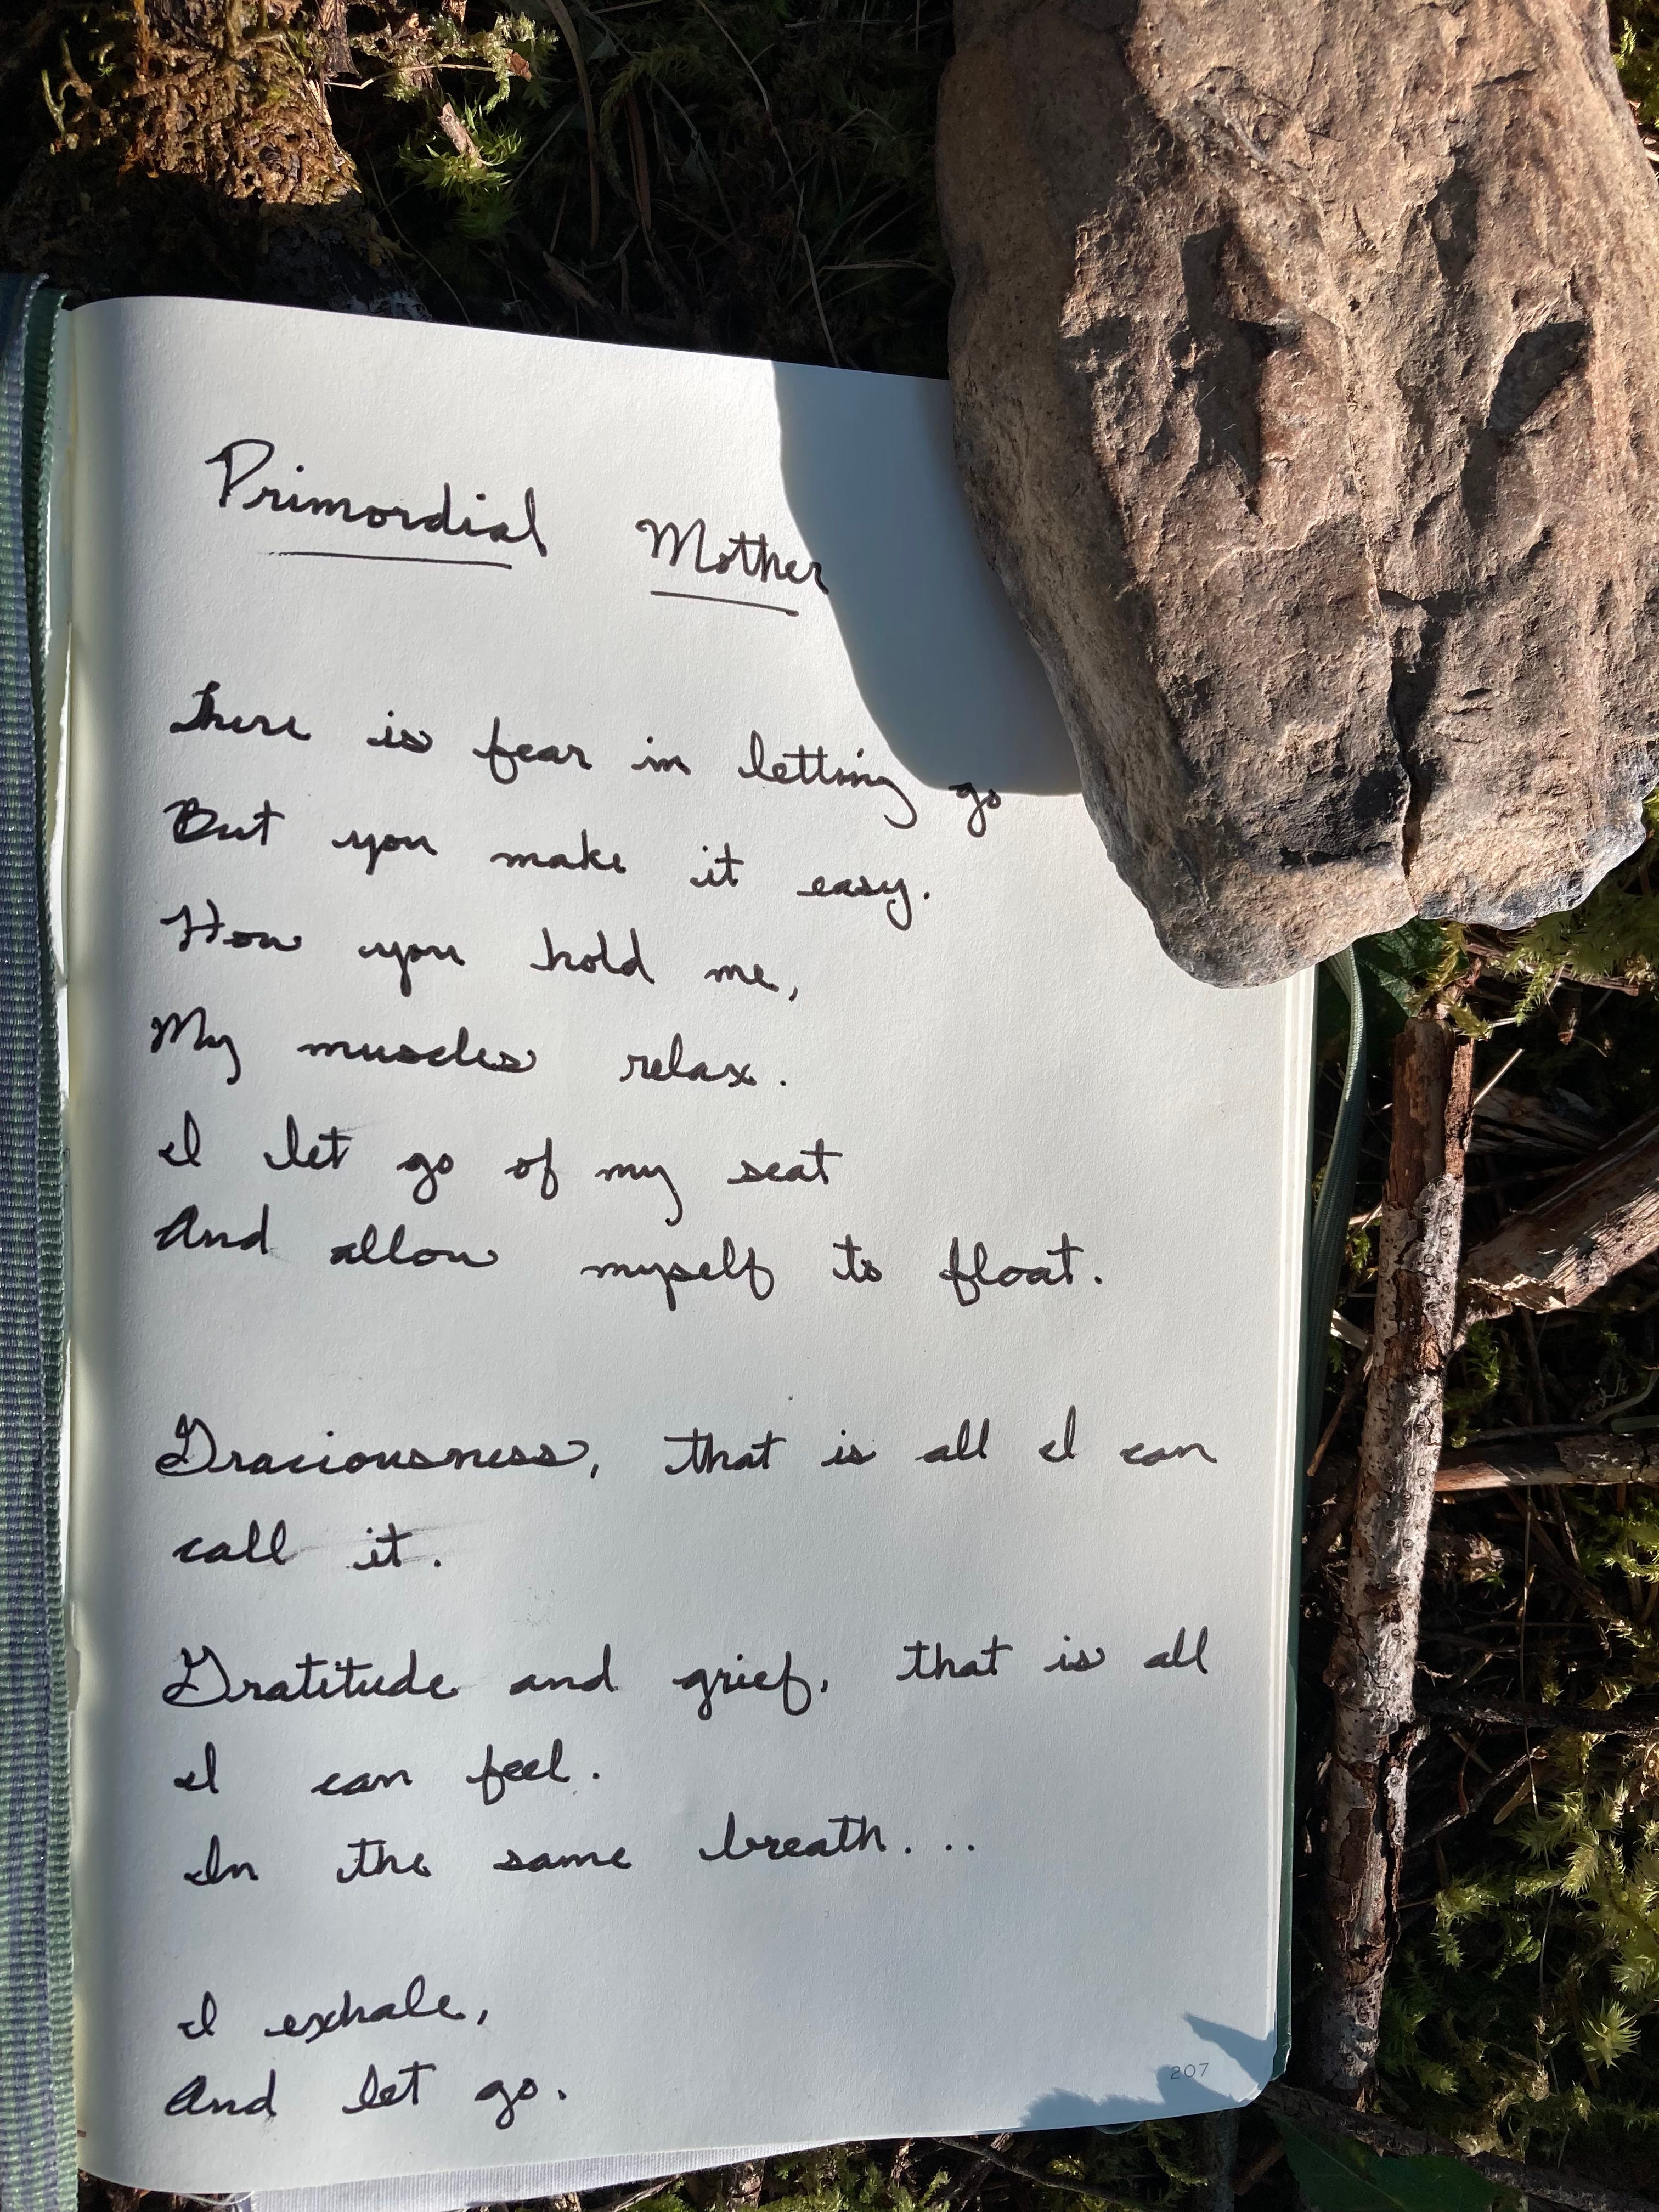 Primordial Mother
There is fear in letting go
But you make it easy.
How you hold me,
My muscles relax.
I let go of my seat
And allow myself to float.
Graciousness, that is all I can
call it.
Gratitude and grief, that is all
I can feel.
In the same breath...
I exhale,
And let go.
207